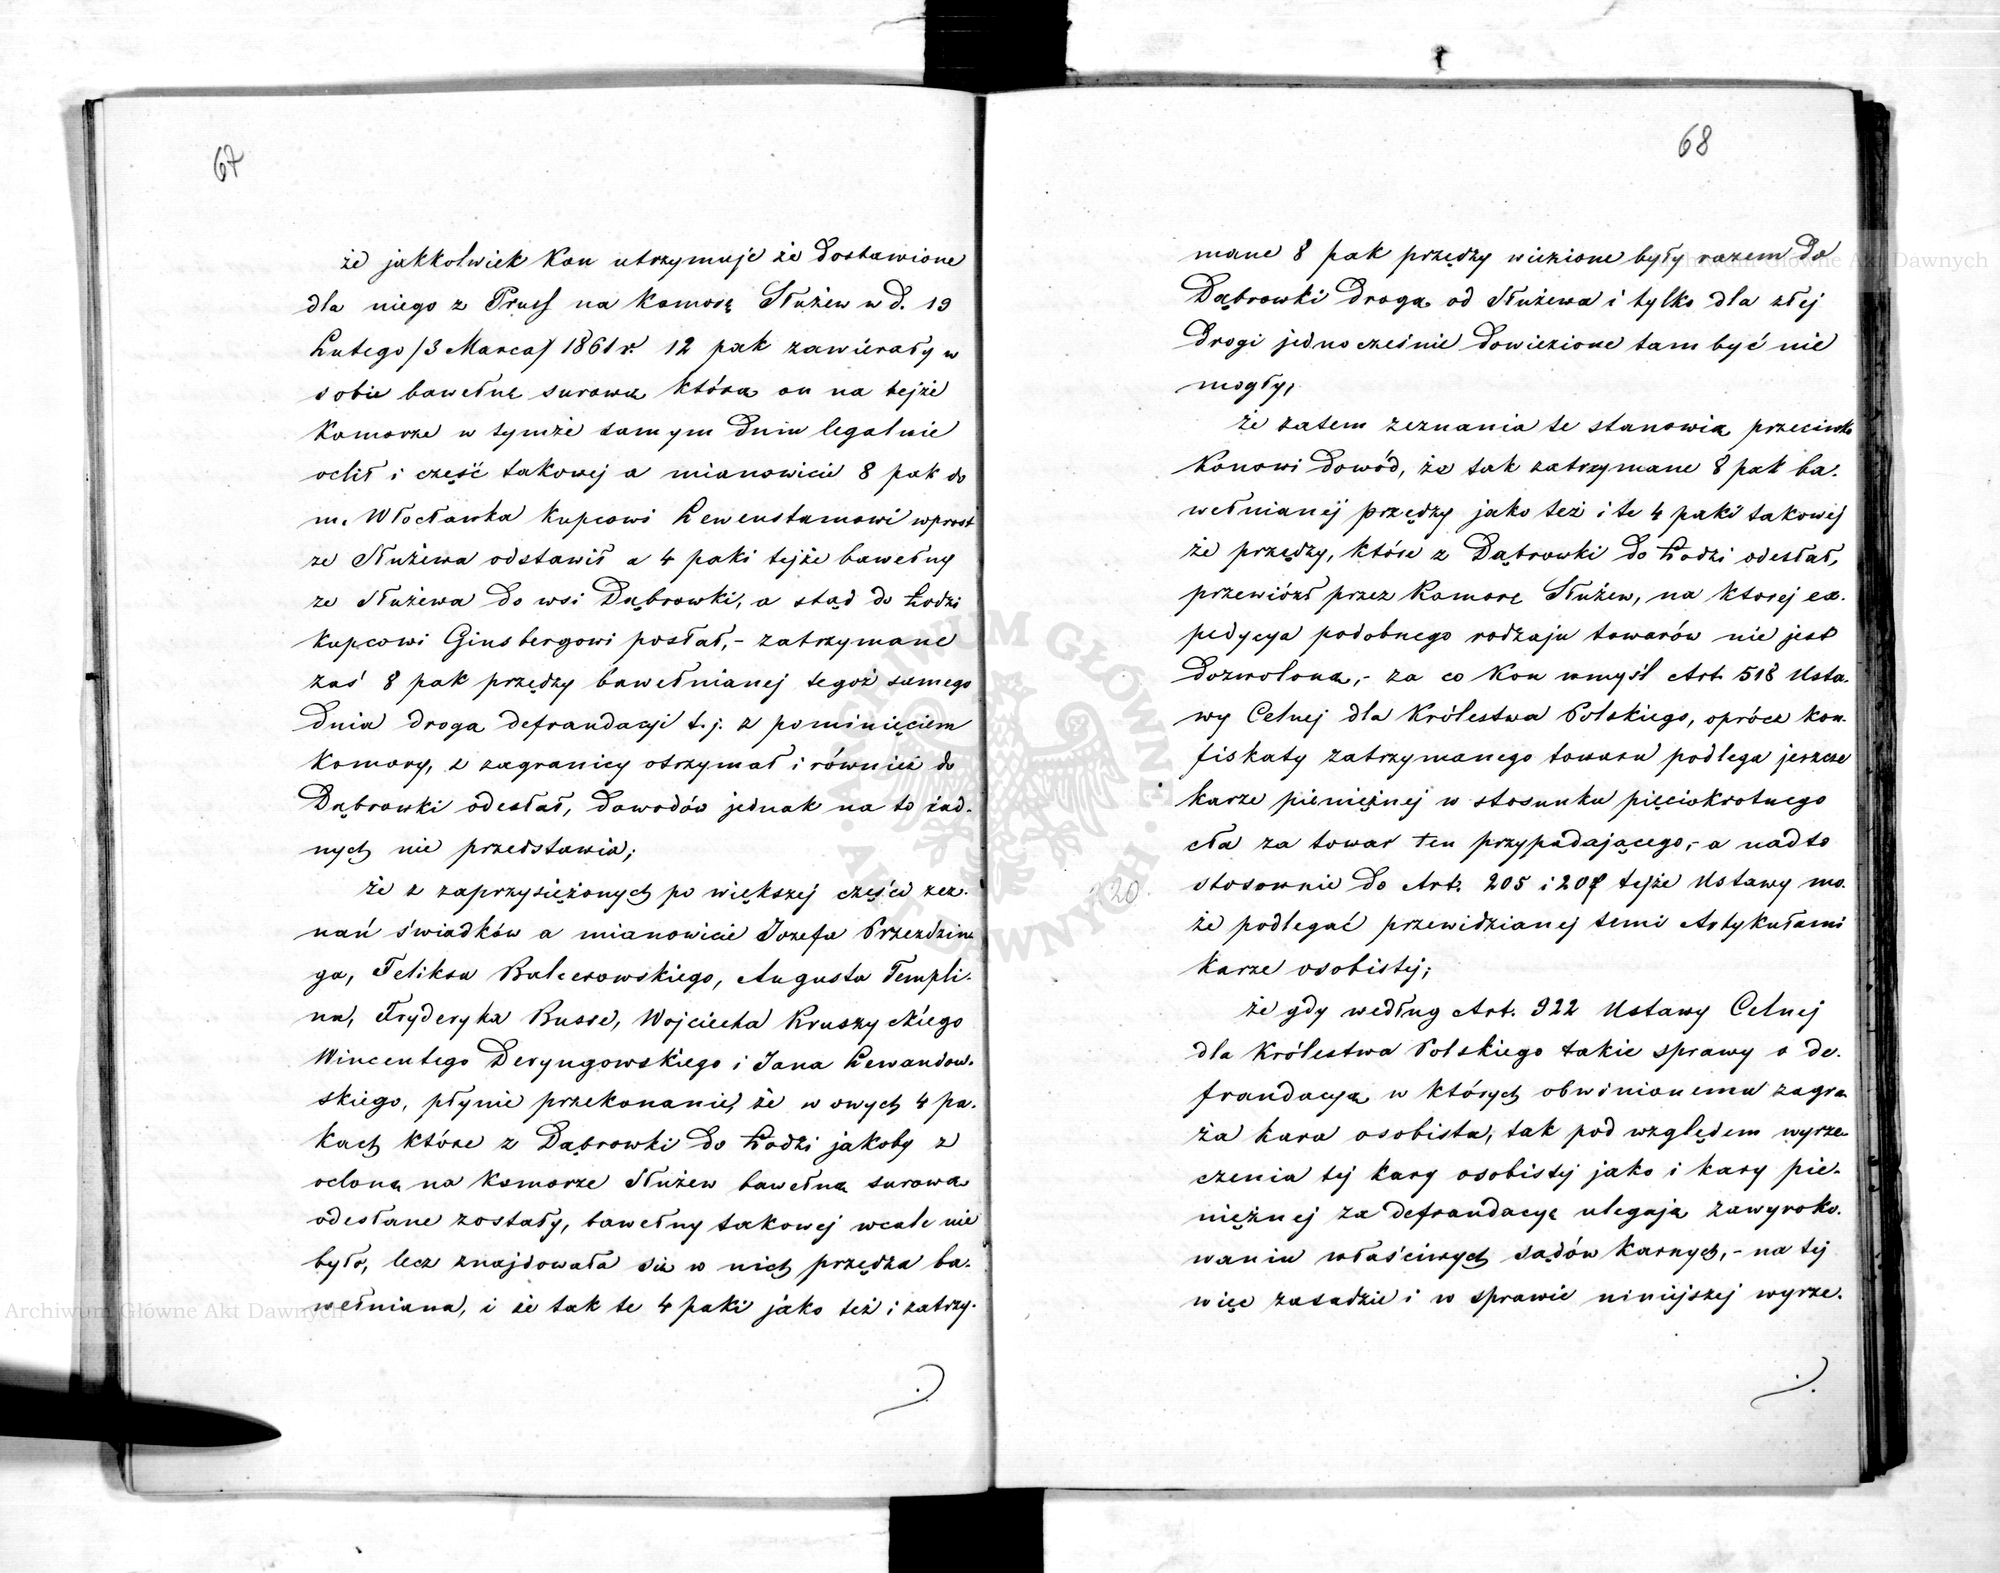 67
że jakkolwiek Kon utrzymuje że dostawione
dla niego z Pruss na Komorę Służew w d. 19
Lutego /3 Marca/ 1861 r. 12 pak zawierały w
sobie bawełnę surową którą on na tejże
Komorze w tymże samym dniu legalnie
oclił i część takowej a mianowicie 8 pak do
m. Włocławka kupcowi Lewenstamowi wprost
ze Służewa odstawił a 4 paki tejże bawełny
ze Służewa do wsi Dąbrowki, a stąd do Łodzi
kupcowi Ginsbergowi posłał,- zatrzymane
zaś 8 pak przędzy bawełnianej tegoż samego
dnia drogą defraudacyi t.j. z pominięciem
Komory, z zagranicy otrzymał i również do
Dąbrowki odesłał, dowodów jednak na to żad-
nych nie przedstawia;
że z zaprzysiężonych po większej części zez-
nań świadków a mianowicie Jozefa Przezdzin
ga, Feliksa Balcerowskiego, Augusta Templi-
na, Fryderyka Busse, Wojciecha Kruszyckiego
Wincentego Deryngowskiego i Jana Lewandow-
skiego, płynie przekonanie, że w owych 4 pa-
kach które z Dąbrowki do Łodzi jakoby z
ocloną na Komorze Służew bawełną surową
odesłane zostały, bawełny takowej wcale nie
było, lecz znajdowała się w nich przędza ba-
wełniana, i że tak te 4 paki jako też i zatrzy-
68
mane 8 pak przędzy wiezione były razem do
Dąbrowki drogą od Służewa i tylko dla złej
drogi jednocześnie dowiezione tam być nie
mogły,
że zatem zeznania te stanowią przeciwko
Konowi dowód, że tak zatrzymane 8 pak ba-
wełnianej przędzy jako też i te 4 paki takowej
że przędzy, które z Dąbrowki do Łodzi odesłał,
przewiózł przez Komorę Służew, na ktorej ex-
pedycya podobnego rodzaju towarów nie jest
dozwoloną,- za co Kon wmyśl Art. 518 Usta-
wy Celnej dla Królestwa Polskiego, oprócz kon-
fiskaty zatrzymanego towaru podlega jeszcze
karze pieniężnej w stosunku pięciokrotnego
cła za towar ten przypadającego,- a nadto
stosownie do Art. 205 i 207 tejże Ustawy mo-
że podlegać przewidzianej temi Artykułami
karze osobistej;
że gdy według Art. 922 Ustawy Celnej
dla Królestwa Polskiego takie sprawy o de-
fraudacyą w których obwinionemu zagra
ża kara osobista, tak pod względem wyrze-
czenia tej kary osobistej jako i kary pie-
niężnej za defraudacyę ulegają zawyroko-
waniu właściwych sądów karnych,- na tej
więc zasadzie i w sprawie niniejszej wyrze-
220
Archiwum Główne Akt Dawnych
Archiwum Główne Akt Dawnych
ARCHIWUM GŁÓWNE AKT DAWNYCH